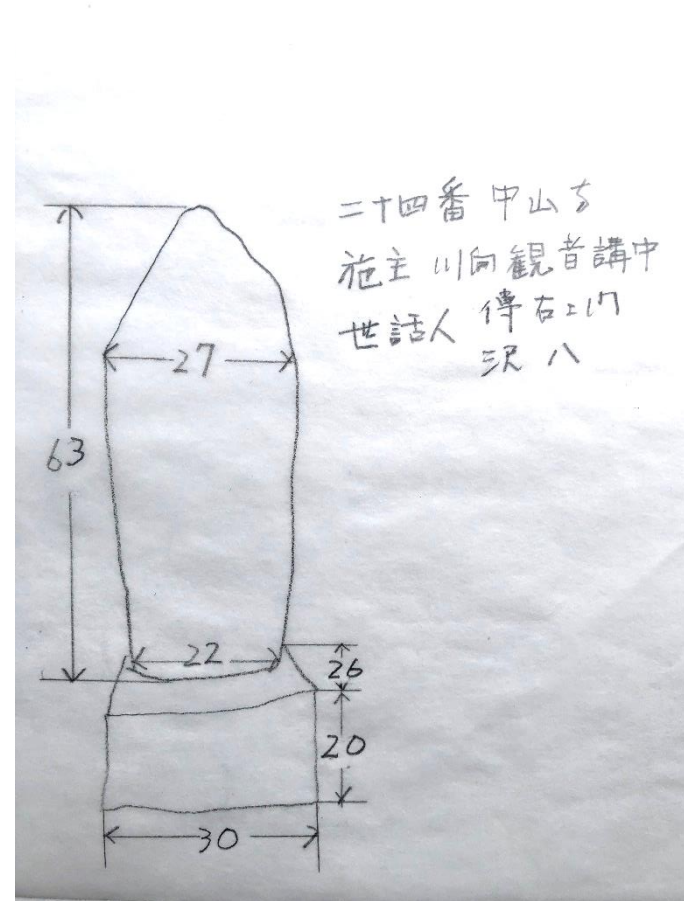 二十四番 中山寺
施主 川向観音講中
世話人 傳右エ門
沢八
27
63
22
26
20
30